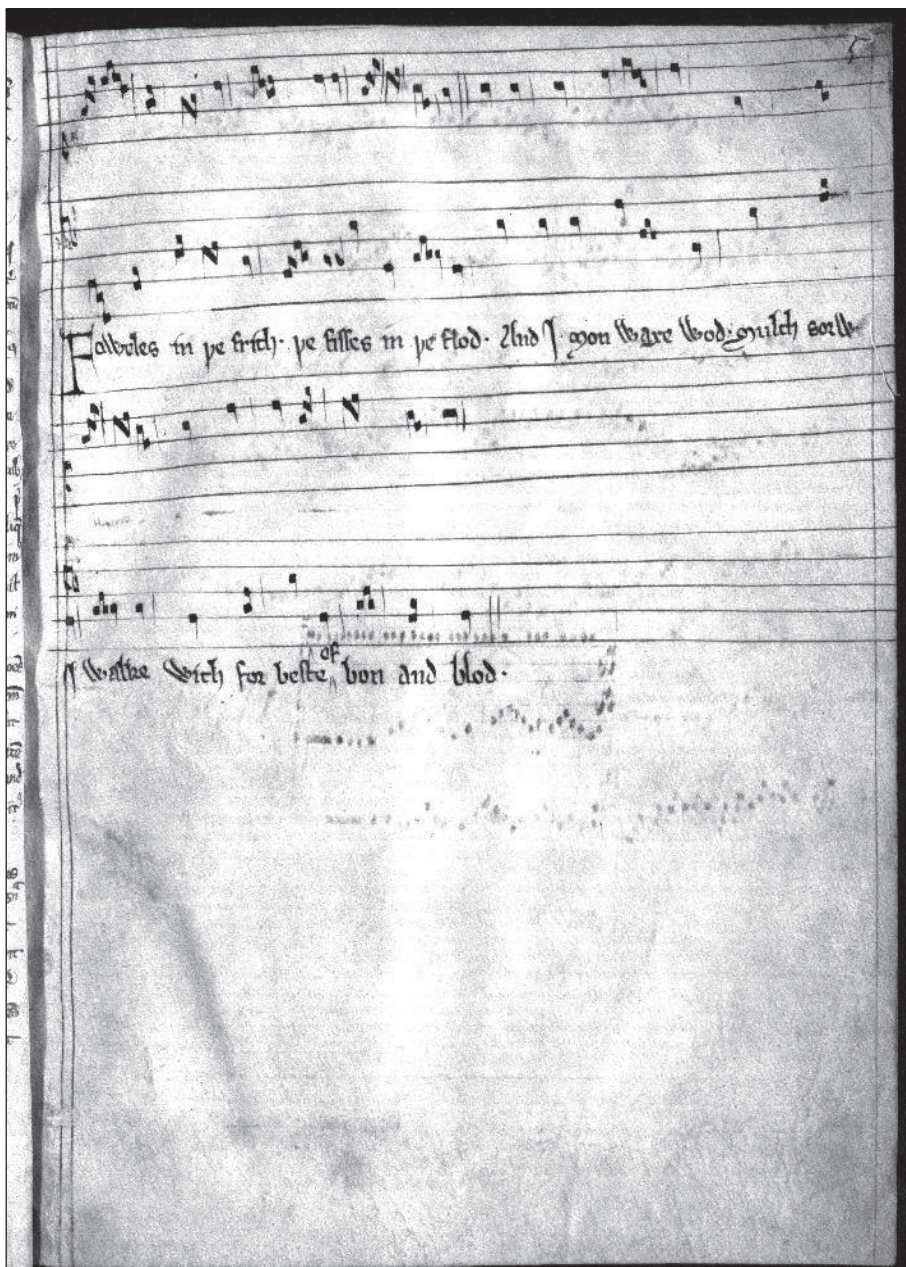 5
Foweles in þe frith· þe fisses in þe flod· And I· mon waxe wod· Mulch sorw·
I walke with for beste of bon and blod·